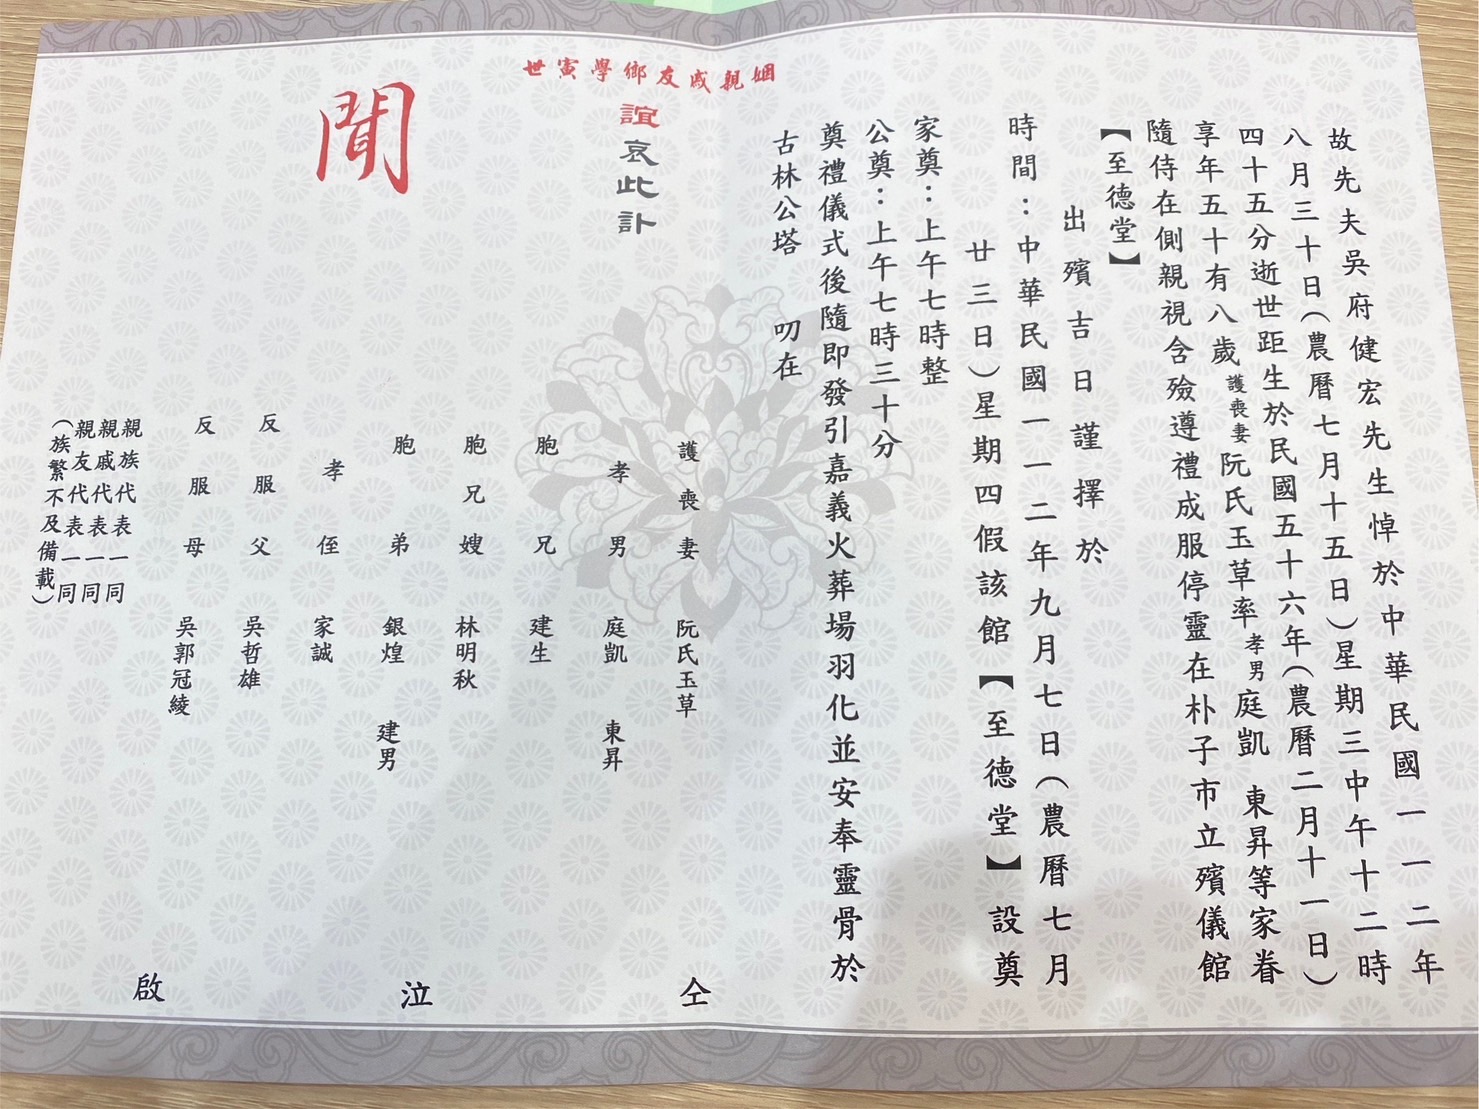 故先夫吳府健宏先生悼於中華民國一一二年
八月三十日（農曆七月十五日）星期三中午十二時
四十五分逝世距生於民國五十六年（農曆二月十一日）
享年五十有八歲護喪妻阮氏玉草率孝男庭凱 東昇等家眷
隨侍在側親視含殮遵禮成服停靈在朴子市立殯儀館
【至德堂】
出殯吉日謹擇於
時間：中華民國一一二年九月七日（農曆七月
廿三日）星期四假該館【至德堂】設奠
家奠：上午七時整
公奠：上午七時三十分
奠禮儀式後隨即發引嘉義火葬場羽化並安奉靈骨於
古林公塔 叨在
姻親戚友鄉學寅世
誼哀此訃
聞
護喪妻 阮氏玉草
孝男 庭凱 東昇
胞兄 建生
胞兄嫂 林明秋
胞弟 銀煌 建男
孝侄 家誠
反服父 吳哲雄
反服母 吳郭冠綾
親族代表一同
親戚代表一同
親友代表一同
（族繁不及備載）
仝 泣 啟